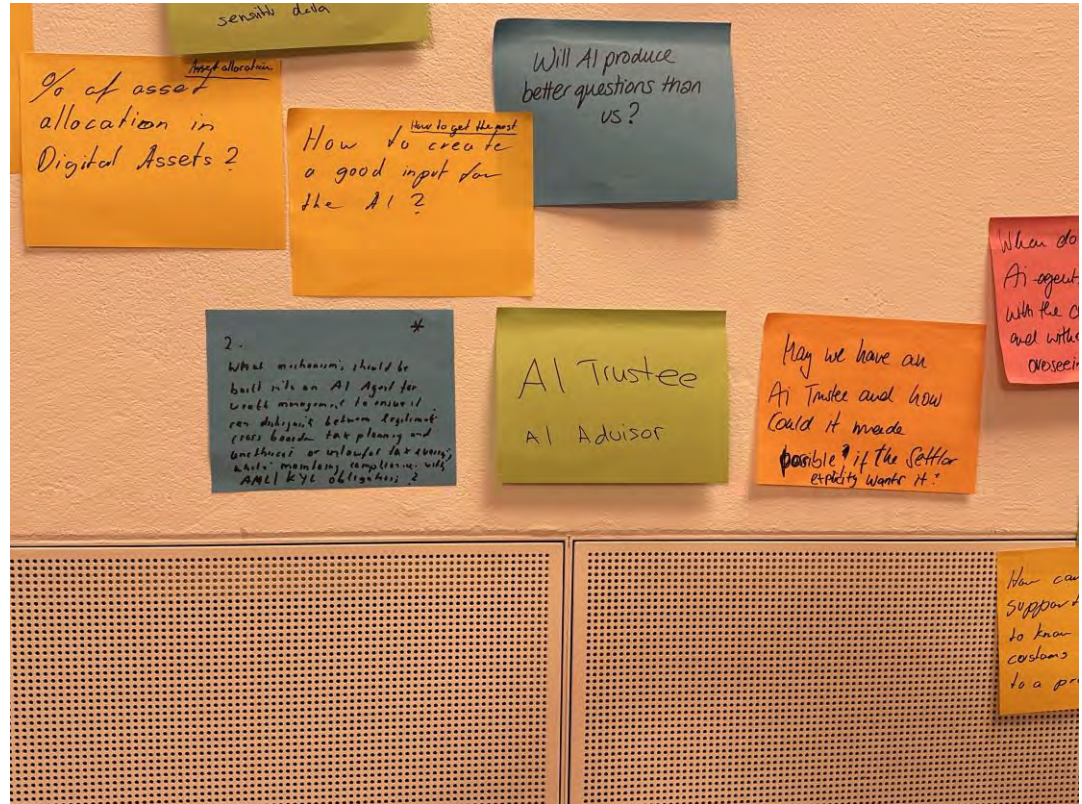 sensitiv data
Asset allocation
% of asset
allocation in
Digital Assets ?
How to get the most
How to create
a good input for
the AI ?
Will AI produce
better questions than
us ?
2.
*
What mechanisms should be
built into an AI Agent for
wealth management to ensure it
can distinguish between legitimate
cross boarder tax planning and
unethical or unlawful tax evasion,
while maintaining compliance with
AML/KYC obligations ?
AI Trustee
AI Advisor
May we have an
Ai Trustee and how
Could it made
possible if the Settlor
explicity wants it?
When do
Ai-agent
with the c
and witho
overseein
How can
support
to know
customs
to a pr